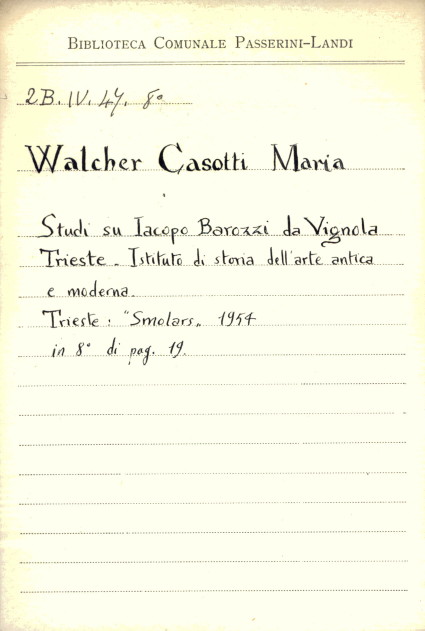 Biblioteca Comunale Passerini-Landi
2B. IV. 47. 8°
Walcher Casotti Maria
Studi su Iacopo Barozzi da Vignola
Trieste - Istituto di storia dell'arte antica
e moderna.
Trieste: "Smolars„ 1954
in 8° di pag. 19.